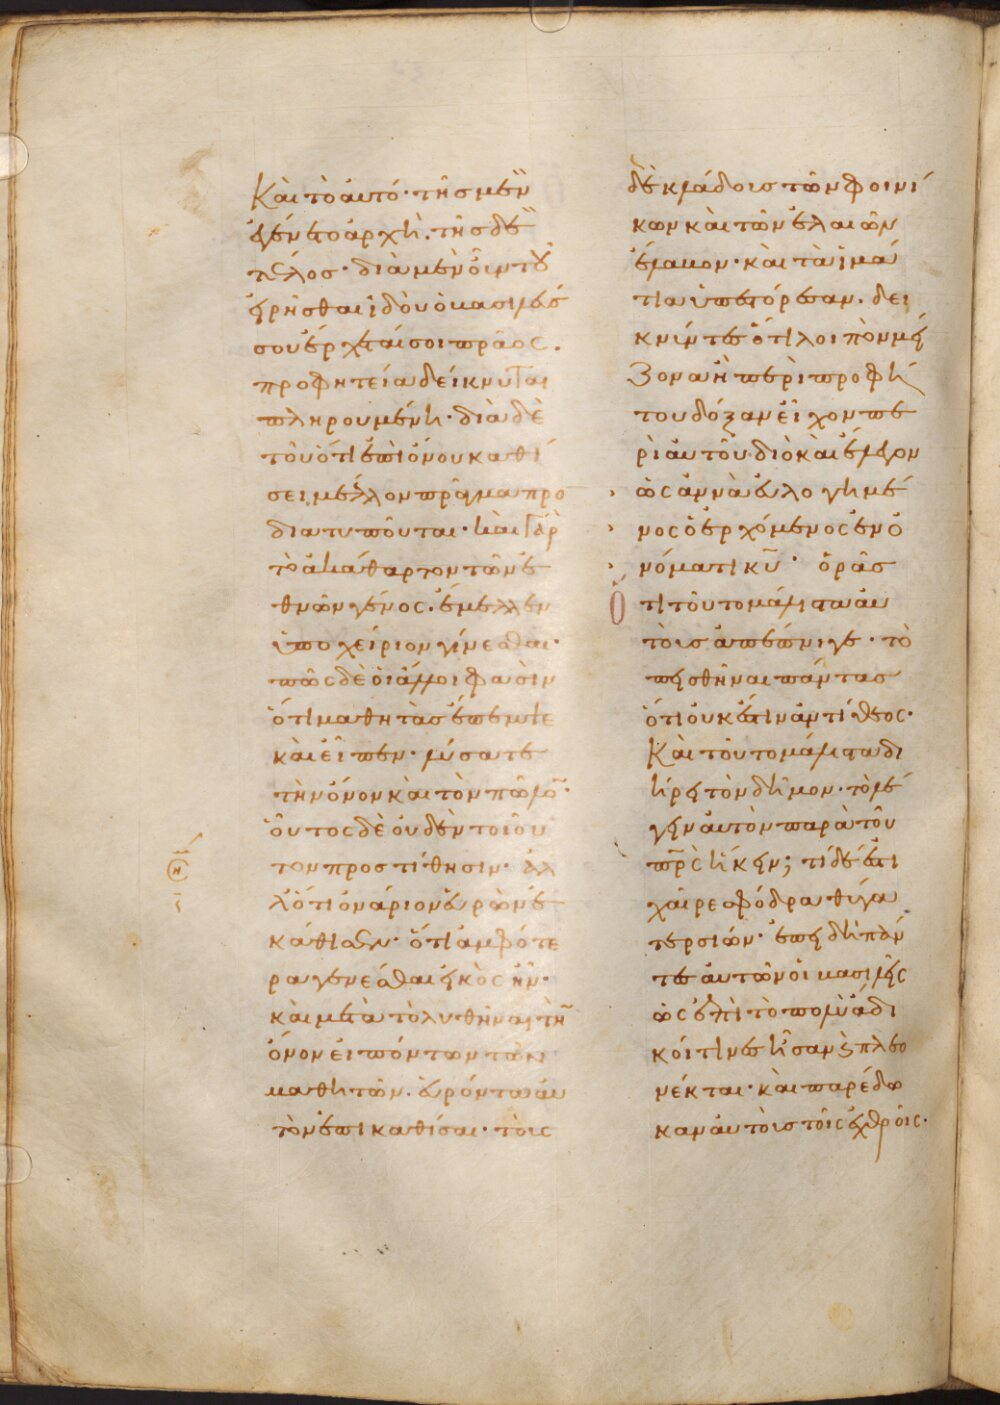 Καὶ τὸ αυτό· τῆς μὲν
ἐγένετο ἀρχὴ· τῆς δὲ
τέλος· διὰ μὲν οὖν τοῦ
εἰρῆσθαι ἰδοὺ ὁ βασιλεύς
σου ἔρχεταί σοι πρᾶος·
προφητεία δείκνυται
πληρουμένη· διὰ δὲ
τοῦ ὅτι ἐπὶ ὄνου καθί
σει, μέλλον πρᾶγμα προ
διατυποῦται· καὶ γὰρ
τὸ ἀκάθαρτον τῶν ἐ
θνῶν γένος· ἔμελλεν
ὑποχείριον γίνεσθαι·
πῶς δὲ οἱ ἄλλοι φασὶν
ὅτι μαθητὰς ἔπεμψε
καὶ εἶπεν· λύσατε
τὴν ὄνον καὶ τὸν πῶλον·
οὗτος δὲ οὐδὲν τοιοῦ
τον προστίθησιν· ἀλ
λ' ὅτι ὀνάριον εὑρὼν ἐ
κάθισεν· ὅτι ἀμφότε
ρα γενέσθαι εἰκὸς ἦν·
καὶ μετὰ τὸ λυθῆναι τὴν
ὄνον εἰπόντων τῶν
μαθητῶν· εὑρόντα αὐ
τὸν ἐπικαθίσαι· τοῖς
δὲ κλάδοις τῶν φοινί
κων καὶ τῶν ἐλαιῶν
ἔλαβον· καὶ τὰ ἱμά
τια ὑπεστόρεσαν· δει
κνύντες ὅτι λοιπὸν μεί
ζονα ἢ περὶ προφή
του δόξαν εἶχον πε
ρὶ αυτοῦ· διὸ καὶ ἔλεγον
ὡσαννὰ εὐλογημέ
νος ὁ ἐρχόμενος ἐν ὀ
νόματι κυ· ὁρᾶς
ὅτι τοῦτο μάλιστα αὐ
τοὺς ἀπέπνιγε· τὸ
πεισθῆναι πάντας
ὅτι οὐκ ἔστιν ἀντίθεος·
Καὶ τοῦτο μάλιστα δι
ῄρει τὸν δῆμον· τὸ λέ
γειν αὐτὸν παρὰ τοῦ
πρς ἥκειν; τί δέ ἐστι
χαῖρε σφόδρα θύγα
τερ σιών· ἐπειδὴ πάν
τες αὐτῶν οἱ βασιλεῖς
ὡς ἐπὶ τὸ πολὺ ἄδι
κοί τινες ἦσαν καὶ πλεο
νέκται· καὶ παρέδω
καν αὐτοὺς τοῖς ἐχθροῖς·